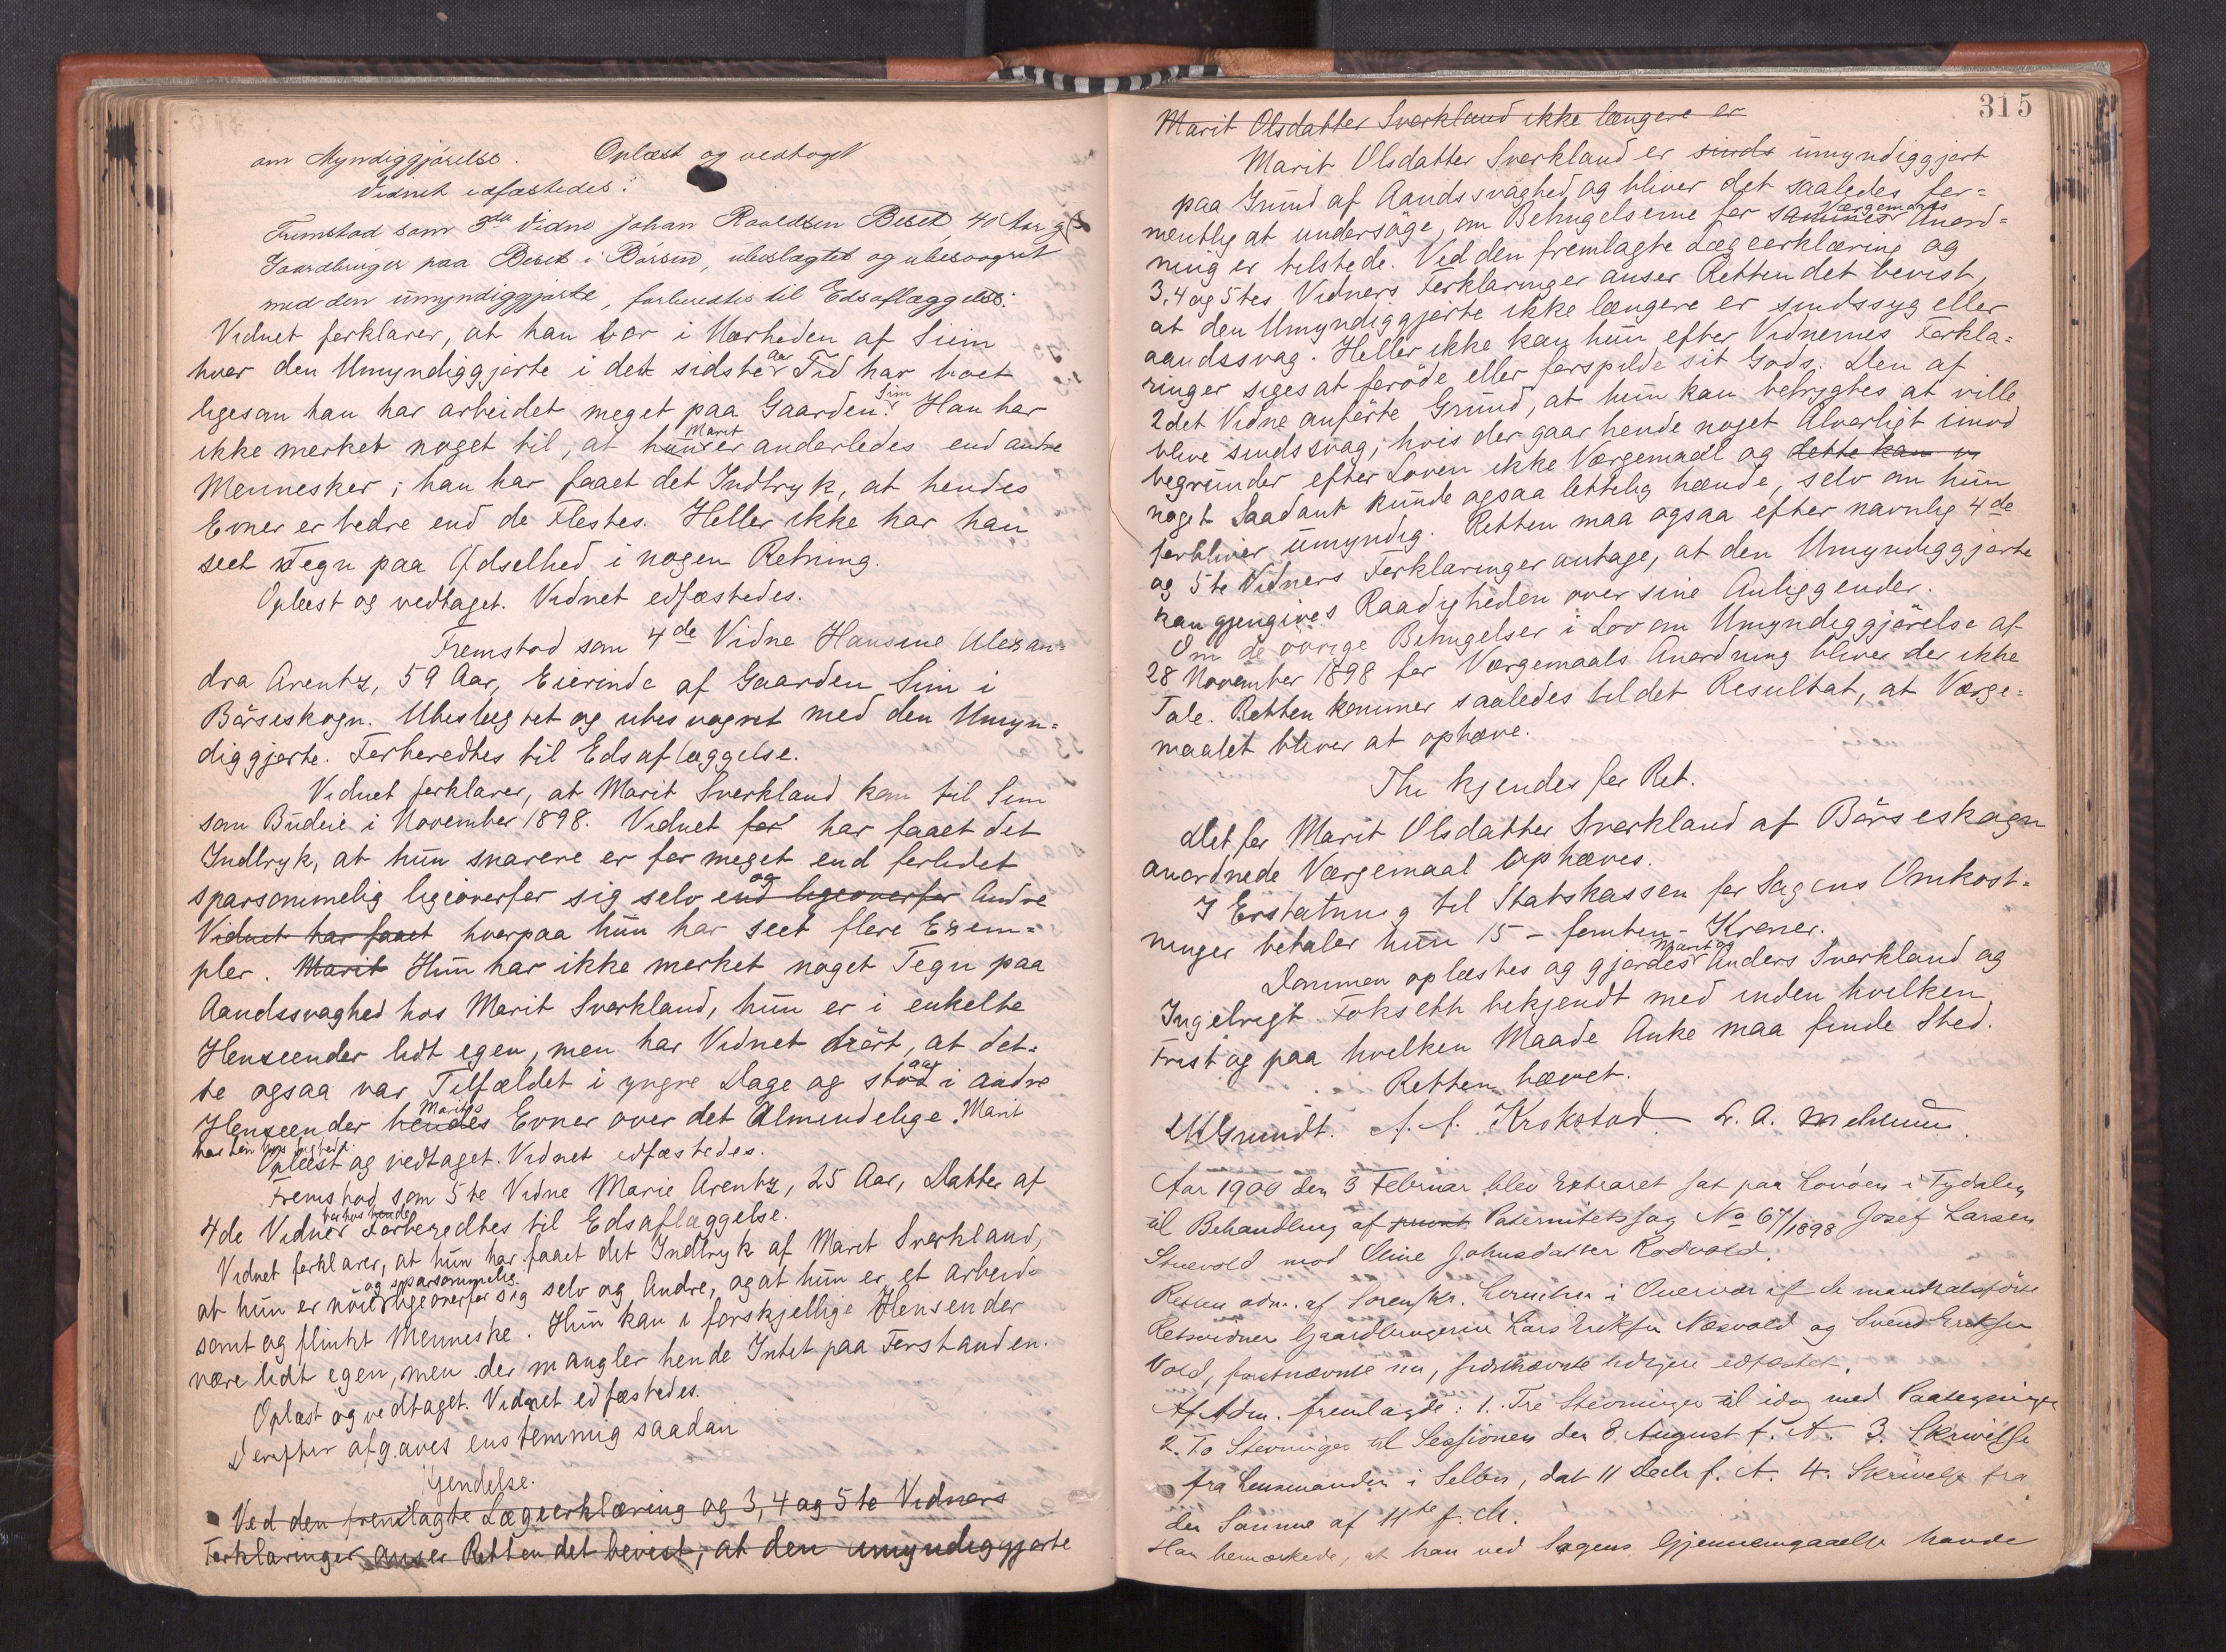 om Myndiggjørelse. Oplæst og vedtaget
Vidnet edfæstedes.
Fremstod som 3die Vidne Johan Roaldsen Beset, 40 Aar g
Gaardbruger paa Beset i Børsen, ubeslægtet og ubesvogret
med den umyndiggjorte, forberedtes til Edsaflæggelse.
Vidnet forklarer, at han bor i Nærheden af Siim
hvor den Umyndiggjorte i det sidste Aar Tid har boet
ligesom han har arbeidet meget paa Gaarden Sim. Han har
ikke merket noget til, at hun Marit er anderledes end andre
Mennesker; han har faaet det Indtryk, at hendes
Evner er bedre end de Flestes. Heller ikke har han
seet Tegn paa Ødselhed i nogen Retning.
Oplæst og vedtaget. Vidnet edfæstedes.
Fremstod som 4de Vidne Hansine Alexan=
dra Arentz, 59 Aar, Eierinde af Gaarden Sim i
Börseskogn. Ubeslegtet og ubesvogret med den Umyn=
diggjorte. Forberedtes til Edsaflæggelse.
Vidnet forklarer, at Marit Sverkland kom til Sim
som Budeie i November 1898. Vidnet for har faaet det
Indtryk, at hun snarere er for meget end forlidet
sparsommelig ligeoverfor sig selv end ligeoverfor og Andre
Vidnet har faaet hvorpaa hun har seet flere Exem=
pler. Marit Hun har ikke merket noget Tegn paa
Aandssvaghed hos Marit Sverkland, hun er i enkelte
Henseender lidt egen, men har Vidnet hört, at det=
te ogsaa var Tilfældet i yngre Dage og staar i andre
Henseender hendes Marits Evner over det Almindelige. Marit
har
Oplæst og vedtaget. Vidnet edfæstedes.
Fremstod som 5te Vidne Marie Arentz, 25 Aar, Datter af
4de Vidne bor hos hende Forberedtes til Edsaflæggelse.
Vidnet forklarer, at hun har faaet det Indtryk af Marit Sverkland,
at hun er nöie og sparsommelig ligeoverfor sig selv og Andre, og at hun er et arbeid
somt og flinkt Menneske. Hun kan i forskjellige Hensender
være lidt egen, men der mangler hende Intet paa Forstanden.
Oplæst og vedtaget. Vidnet edfæstedes.
Derefter afgaves enstemmig saadan
Kjendelse.
Ved den fremlagte Lægeerklæring og 3, 4 og 5te Vidners
Forklaringer anser Retten det bevist, at den umyndiggjorte
315
Marit Olsdatter Sverkland ikke længere er
Marit Olsdatter Sverkland er sinds umyndiggjort
paa Grund af Aandssvaghed og bliver det saaledes for=
mentlig at undersöge, om Betingelserne for sammes Værgemaals Anord=
ning er tilstede. Ved den fremlagte Lægeerklæring og
3, 4 og 5tes Vidners Forklaringer anser Retten det bevist,
at den Umyndiggjorte ikke længere er sindssyg eller
aandssvag. Heller ikke kan hun efter Vidnernes Forkla=
ringer siges at foröde eller forspilde sit Gods. Den af
2det Vidne anförte Grund, at hun kan befrygtes at ville
blive sindssvag, hvis der gaar hende noget Alvorligt imod
begrunder efter Loven ikke Værgemaal og dette kan vi
noget Saadant kunde ogsaa lettelig hænde, selv om hun
forbliver umyndig. Retten maa ogsaa efter navnlig 4de
og 5te Vidners Forklaringer antage, at den Umyndiggjorte
kan gjengives Raadigheden over sine Anliggender.
Om de övrige Betingelser i Lov om Umyndiggjörelse af
28 November 1898 for Værgemaals Anordning bliver der ikke
Tale. Retten kommer saaledes til det Resultat, at Værge=
maalet bliver at ophæve.
Thi kjendes for Ret.
Det for Marit Olsdatter Sverkland af Börseskogn
anordnede Værgemaal ophæves.
I Erstatning til Statskassen for Sagens Omkost=
ninger betaler hun 15 - femten - Kroner.
Dommen oplæstes og gjordes Marit og Anders Sverkland og
Ingebrigt Fokseth bekjendt med inden hvilken
Frist og paa hvilken Maade Anke maa finde Sted.
Retten hævet.
Grundt. A. A. Krokstad L. A. Mehlum.
Aar 1900 den 3 Februar blev Extraret sat paa Lovöen i Tydalen
til Behandling af Paternitetssag No 67/1898 Josef Larsen
Stuevold mod Stine Johnsdatter Rodvold.
Retten adm. af Sorenskr. i af de mandtalsförte
Retsvidner Gaardbrugerne Lars Eriksen Næsvold og Svend Eriksen
Vold, förstnævnte nu, sidstnævnte tidligere edfæstet.
Af Adm. fremlagde: 1. Tre Stevninger til idag med Paategninger
2. To Stevninger til Sessionen den 8 August f. A. 3. Skrivelse
fra Lensmanden i Selbu, dat 11 Decb f. A. 4. Skrivelse fra
den Samme af 11te f. M.
Han bemærkede, at han ved Sagens Gjennemgaaelse havde